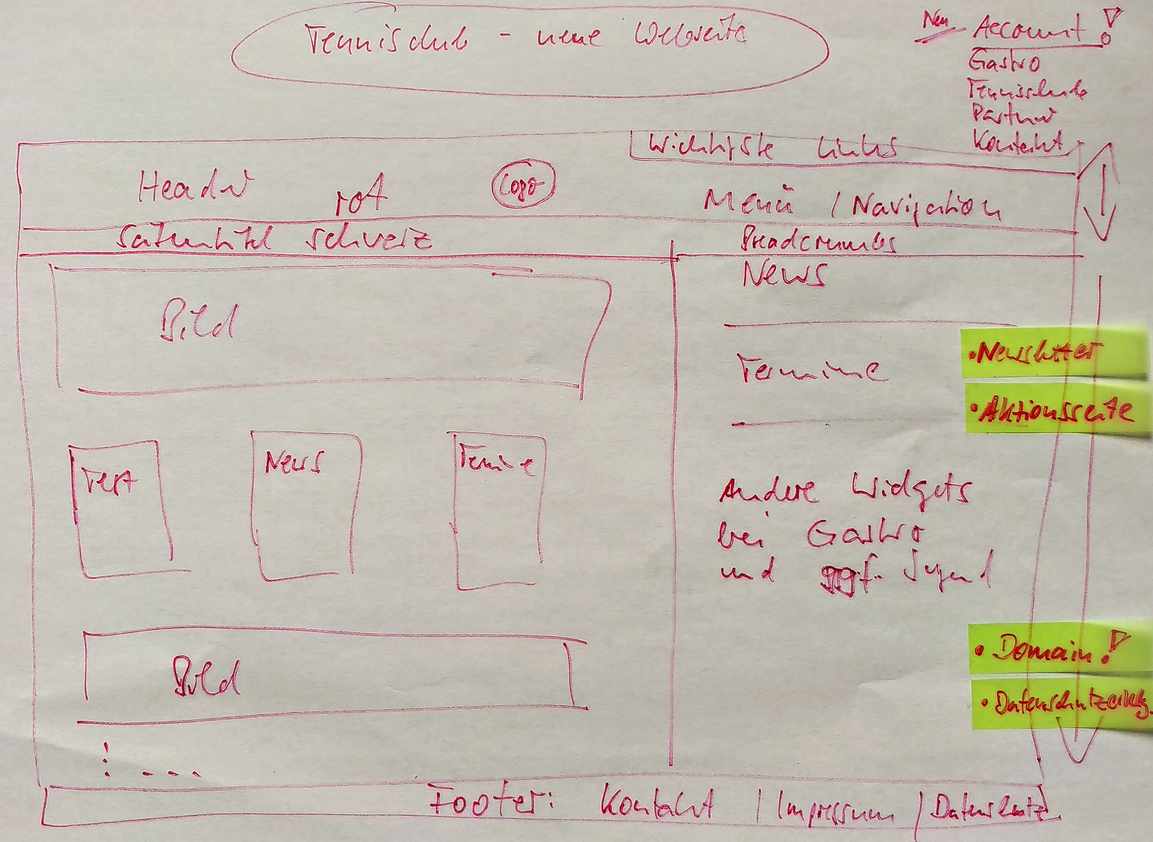 Tennisclub - neue Webseite
Neu Account!
Gastro
Tennisschule
Partner
Kontakt
Wichtigste Links
Header rot Logo Menü / Navigation
Seitentitel schwarz Breadcrumbs
Bild
News
Termine
• Newsletter
• Aktionsseite
Text News Termine
Andere Widgets
bei Gastro
und ggf. Jugend
Bild
• Domain!
• Datenschutzerklg.
Footer: Kontakt / Impressum / Datenschutz